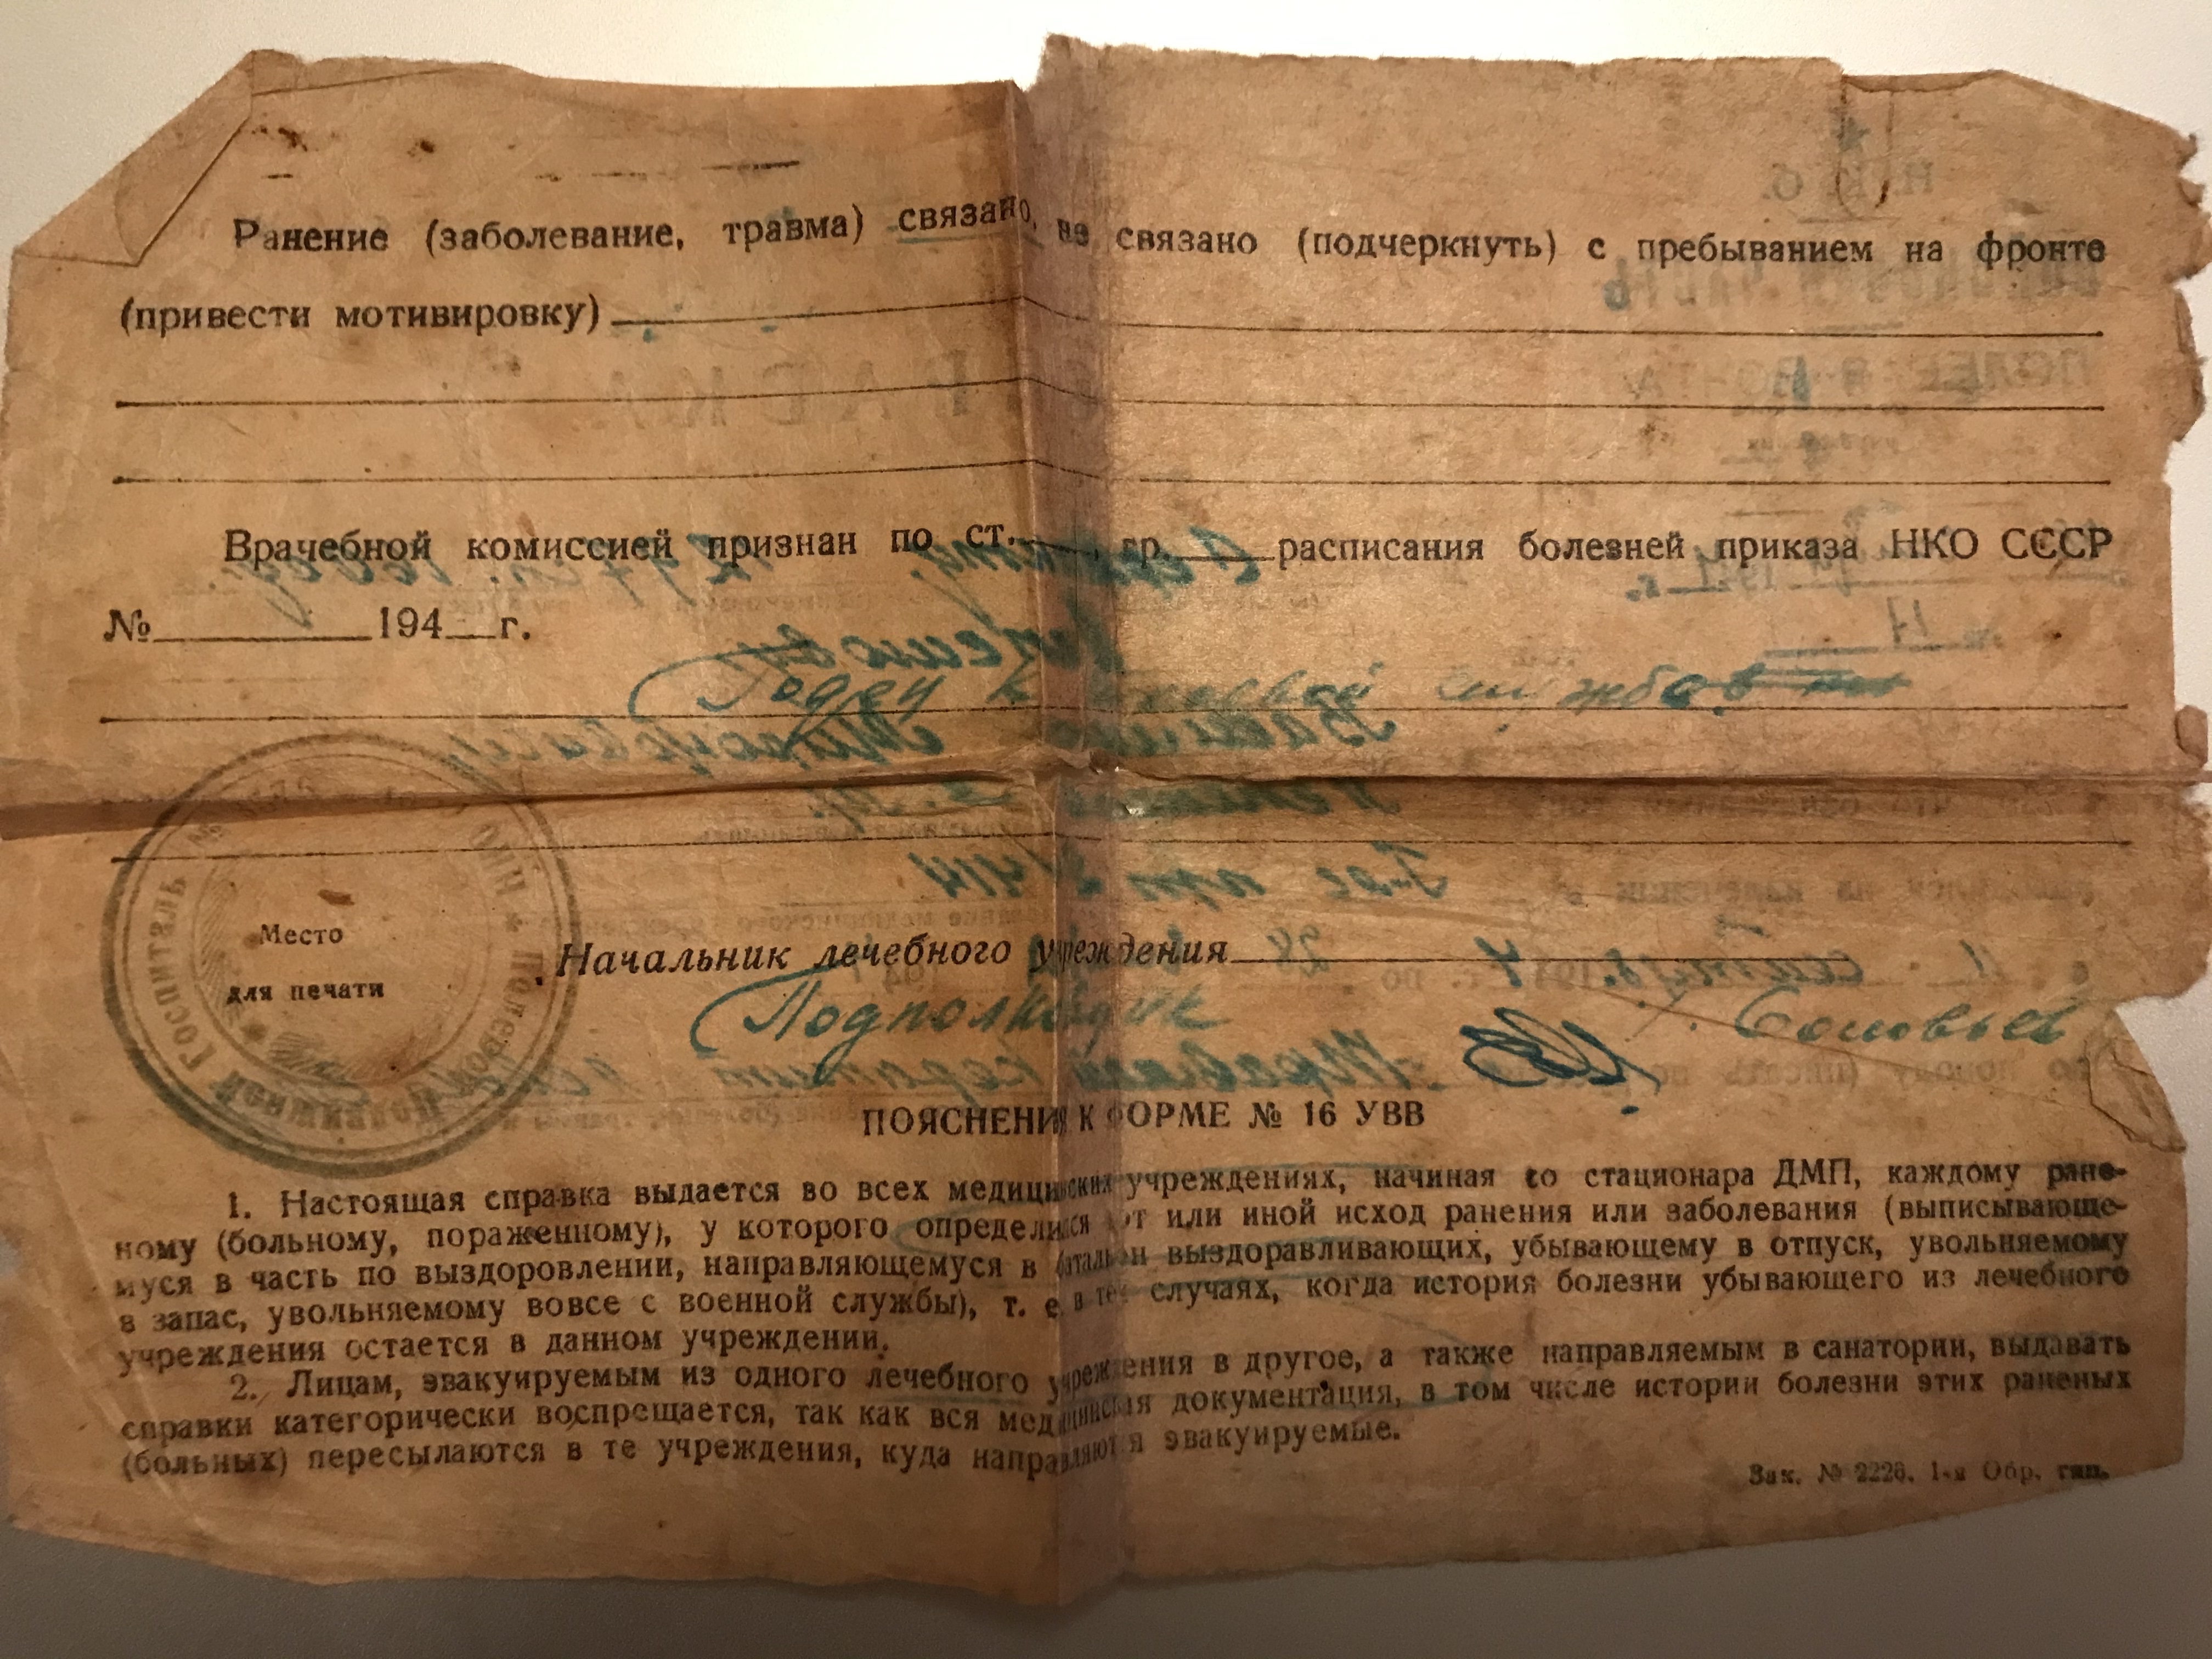 Ранение (заболевание, травма) связано, не связано (подчеркнуть) с пребыванием на фронте
(привести мотивировку)
Врачебной комиссией признан по ст. , гр. расписания болезней приказа НКО СССР
№ 194 г.
Годен к службе
Место
для печати
Полевой Подвижной Госпиталь № НКО
Начальник лечебного учреждения
Подполковник Соловьев
ПОЯСНЕНИЯ К ФОРМЕ № 16 УВВ
1. Настоящая справка выдается во всех медицинских учреждениях, начиная со стационара ДМП, каждому ране-
ному (больному, пораженному), у которого определился тот или иной исход ранения или заболевания (выписывающе-
муся в часть по выздоровлении, направляющемуся в батальон выздоравливающих, убывающему в отпуск, увольняемому
в запас, увольняемому вовсе с военной службы), т. е. в тех случаях, когда история болезни убывающего из лечебного
учреждения остается в данном учреждении.
2. Лицам, эвакуируемым из одного лечебного учреждения в другое, а также направляемым в санатории, выдавать
справки категорически воспрещается, так как вся медицинская документация, в том числе истории болезни этих раненых
(больных) пересылаются в те учреждения, куда направляются эвакуируемые.
Зак. № 2226. 1-я Обр. тип.